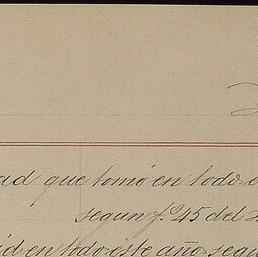 ad que tomó en todo e
segun f.º 45 del
id en todo este año segu